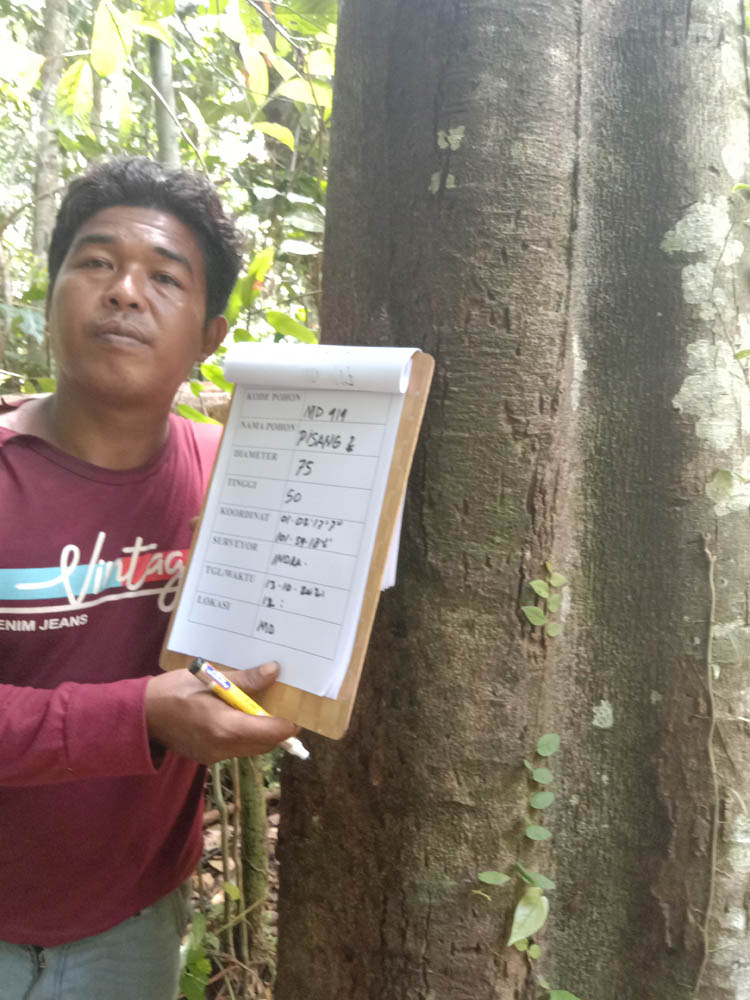 KODE POHON MD 919
NAMA POHON PISANG2
DIAMETER 75
TINGGI 50
KOORDINAT
SURVEYOR INDRA
TGL/WAKTU 13-10-2021
12 :
LOKASI MD
Vintag
ENIM JEANS